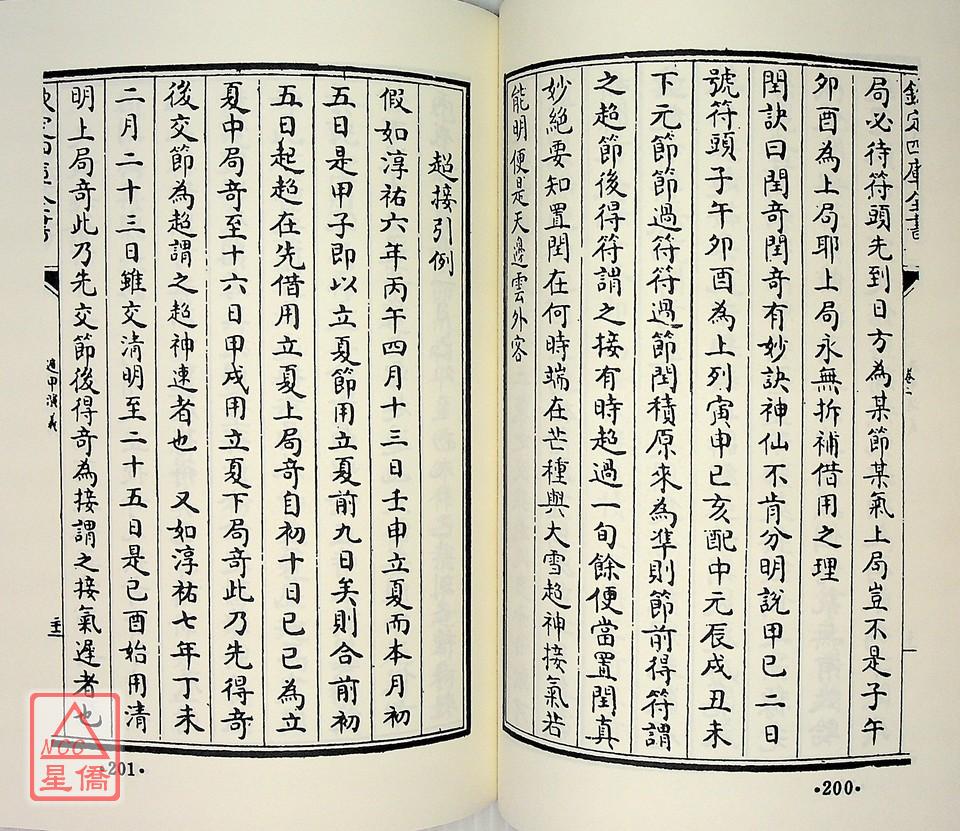 欽定四庫全書
卷二
局必待符頭先到日方為某節某氣上局豈不是子午
卯酉為上局耶上局永無拆補借用之理
閏訣曰閏奇閏奇有妙訣神仙不肯分明說甲已二日
號符頭子午卯酉為上列寅申已亥配中元辰戌丑未
下元節節過符符過節閏積原來為准則節前得符謂
之超節後得符謂之接有時超過一旬餘便當置閏真
妙絕要知置閏在何時端在芒種與大雪超神接氣若
能明便是天邊雲外客
·200·
超接引例
假如淳祐六年丙午四月十三日壬申立夏而本月初
五日是甲子即以立夏節用立夏前九日矣則合前初
五日起超在先借用立夏上局奇自初十日已已為立
夏中局奇至十六日甲戌用立夏下局奇此乃先得奇
後交節為超謂之超神速者也 又如淳祐七年丁未
二月二十三日雖交清明至二十五日是已酉始用清
明上局奇此乃先交節後得奇為接謂之接氣遲者也
欽定四庫全書
遁甲演義
·201·
NCC
星僑